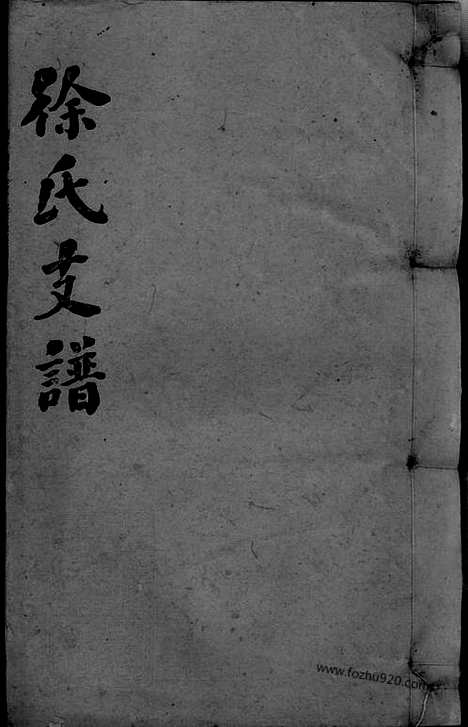 徐氏支譜
www.fozhu920.com